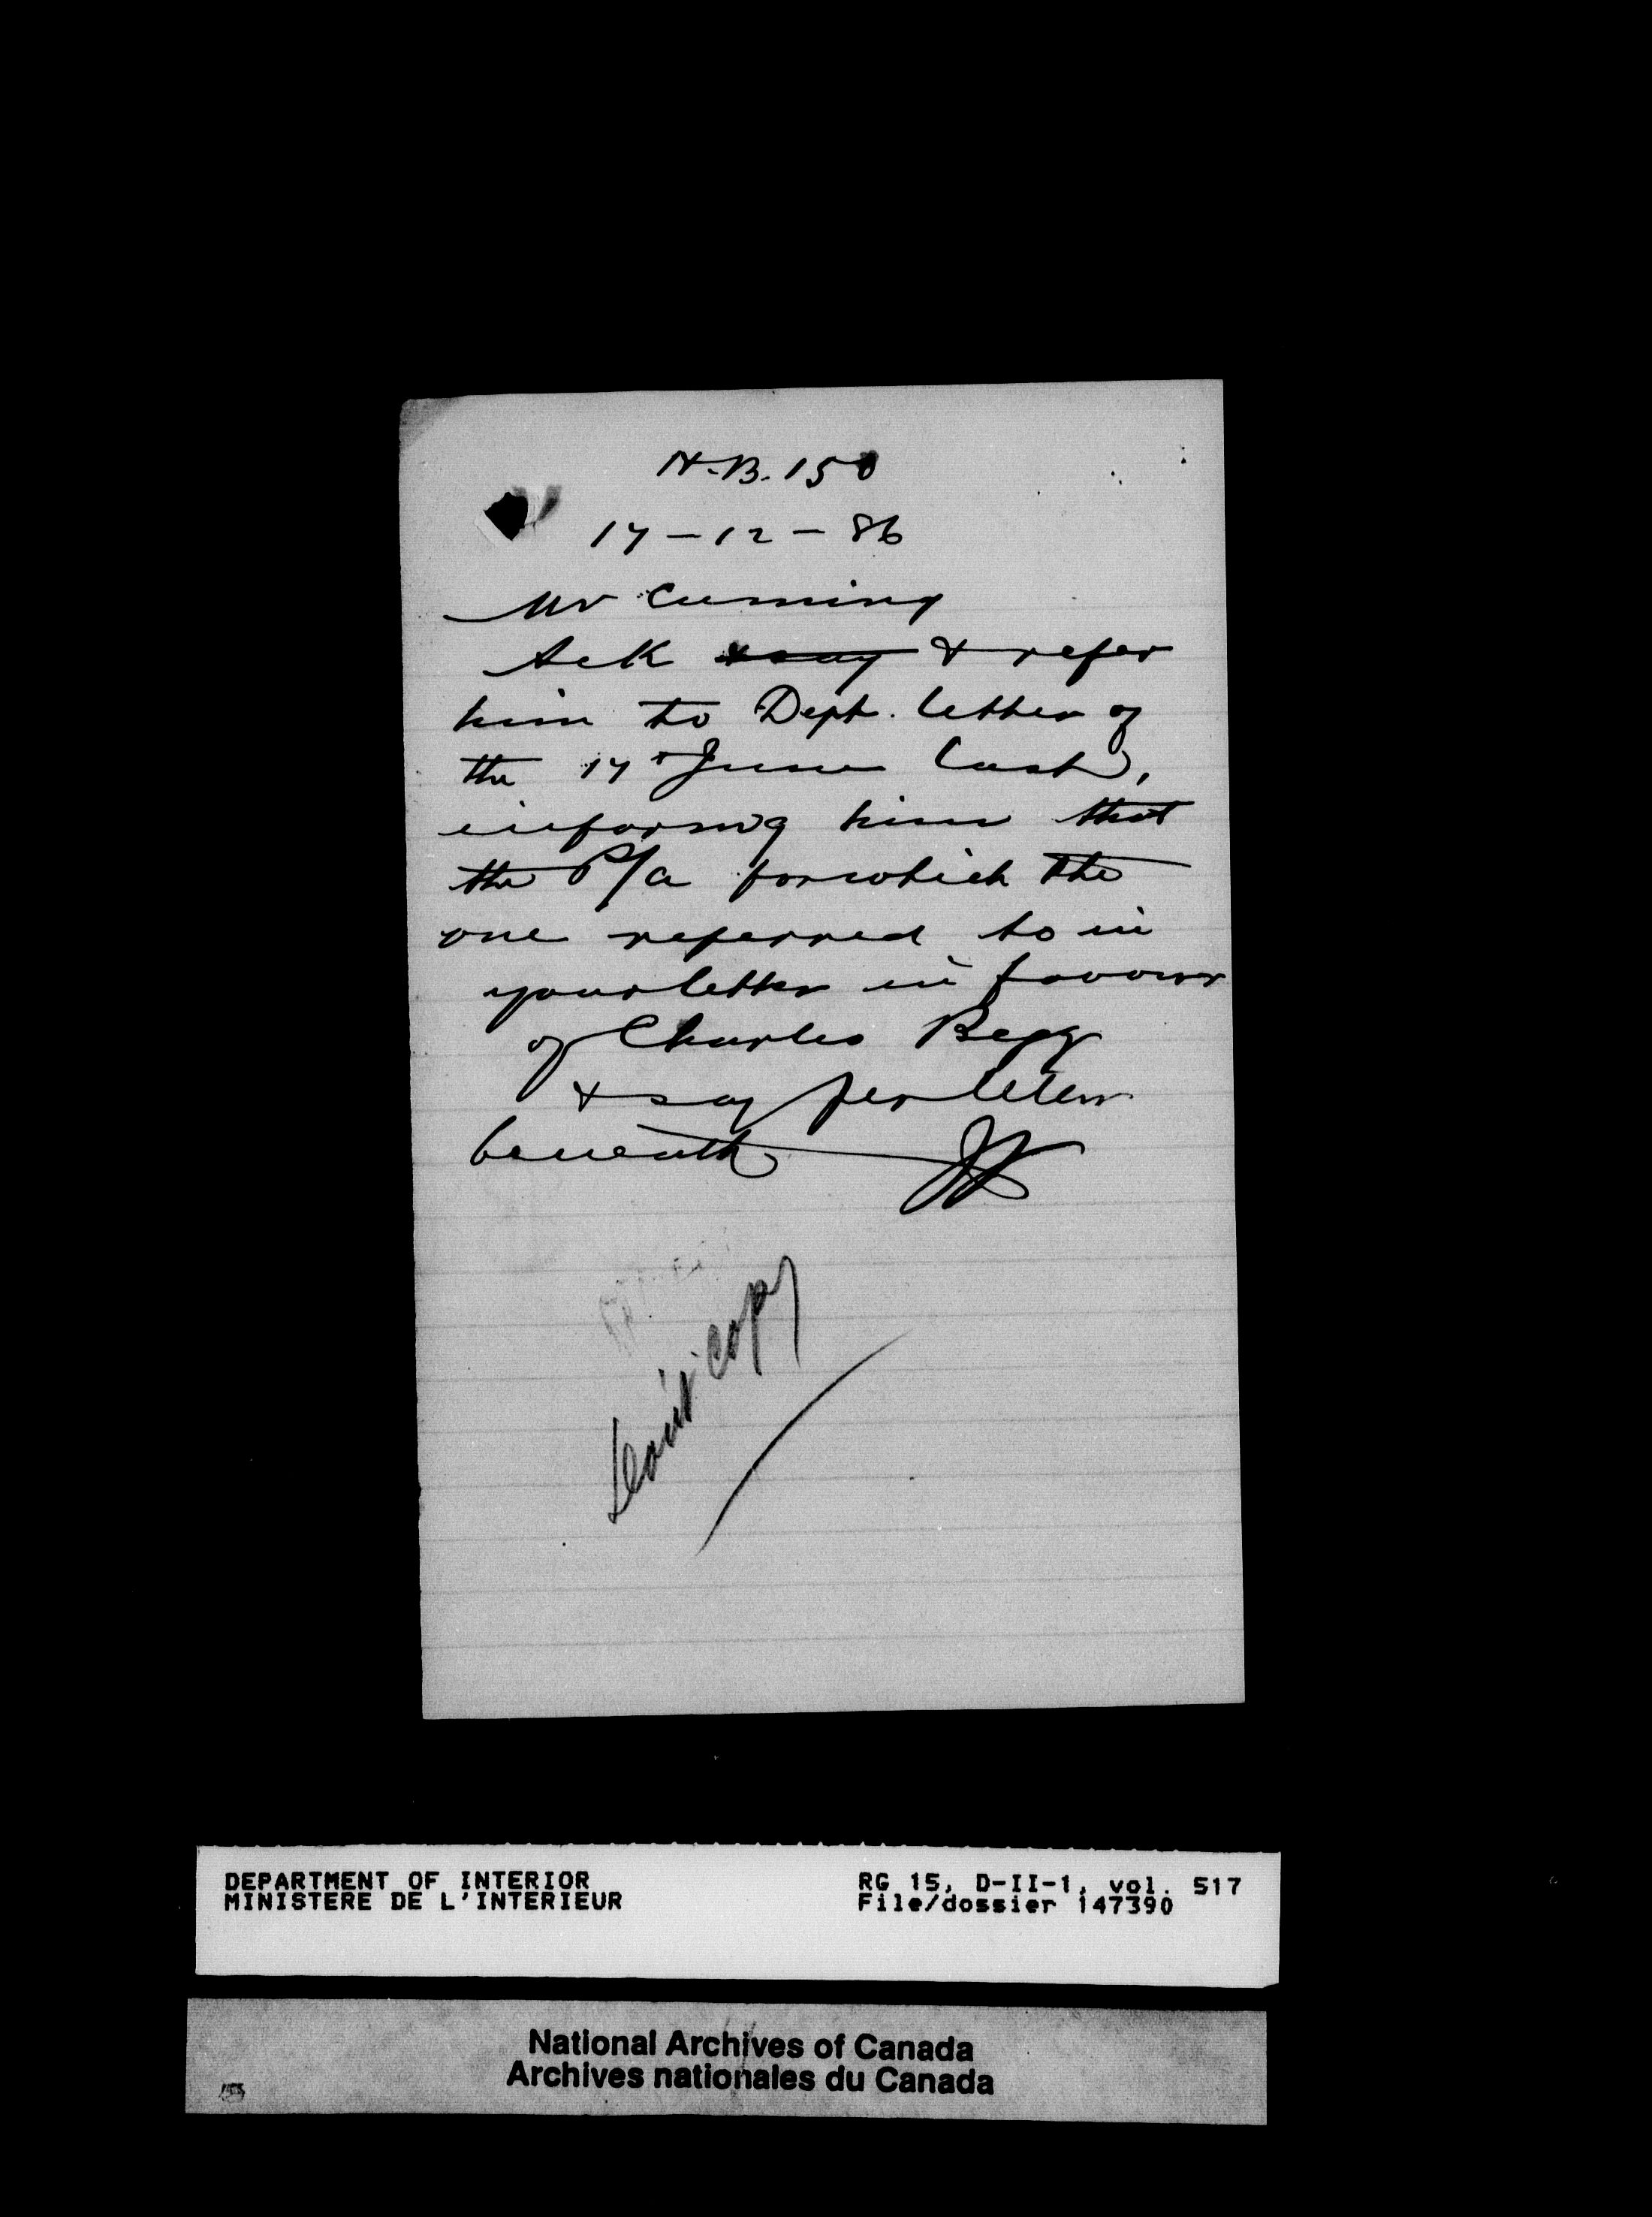 H.B. 150
17-12-86
Mr Cuming
Ack & say & refer
him to Dept. letter of
the 17th June last,
informg him that
the P/a for which the
one referred to in
your letter in favour
of Charles Begg
& say per letter
beneath
copy
DEPARTMENT OF INTERIOR
MINISTERE DE L'INTERIEUR
RG 15, D-II-1, vol. 517
File/dossier 147390
National Archives of Canada
Archives nationales du Canada